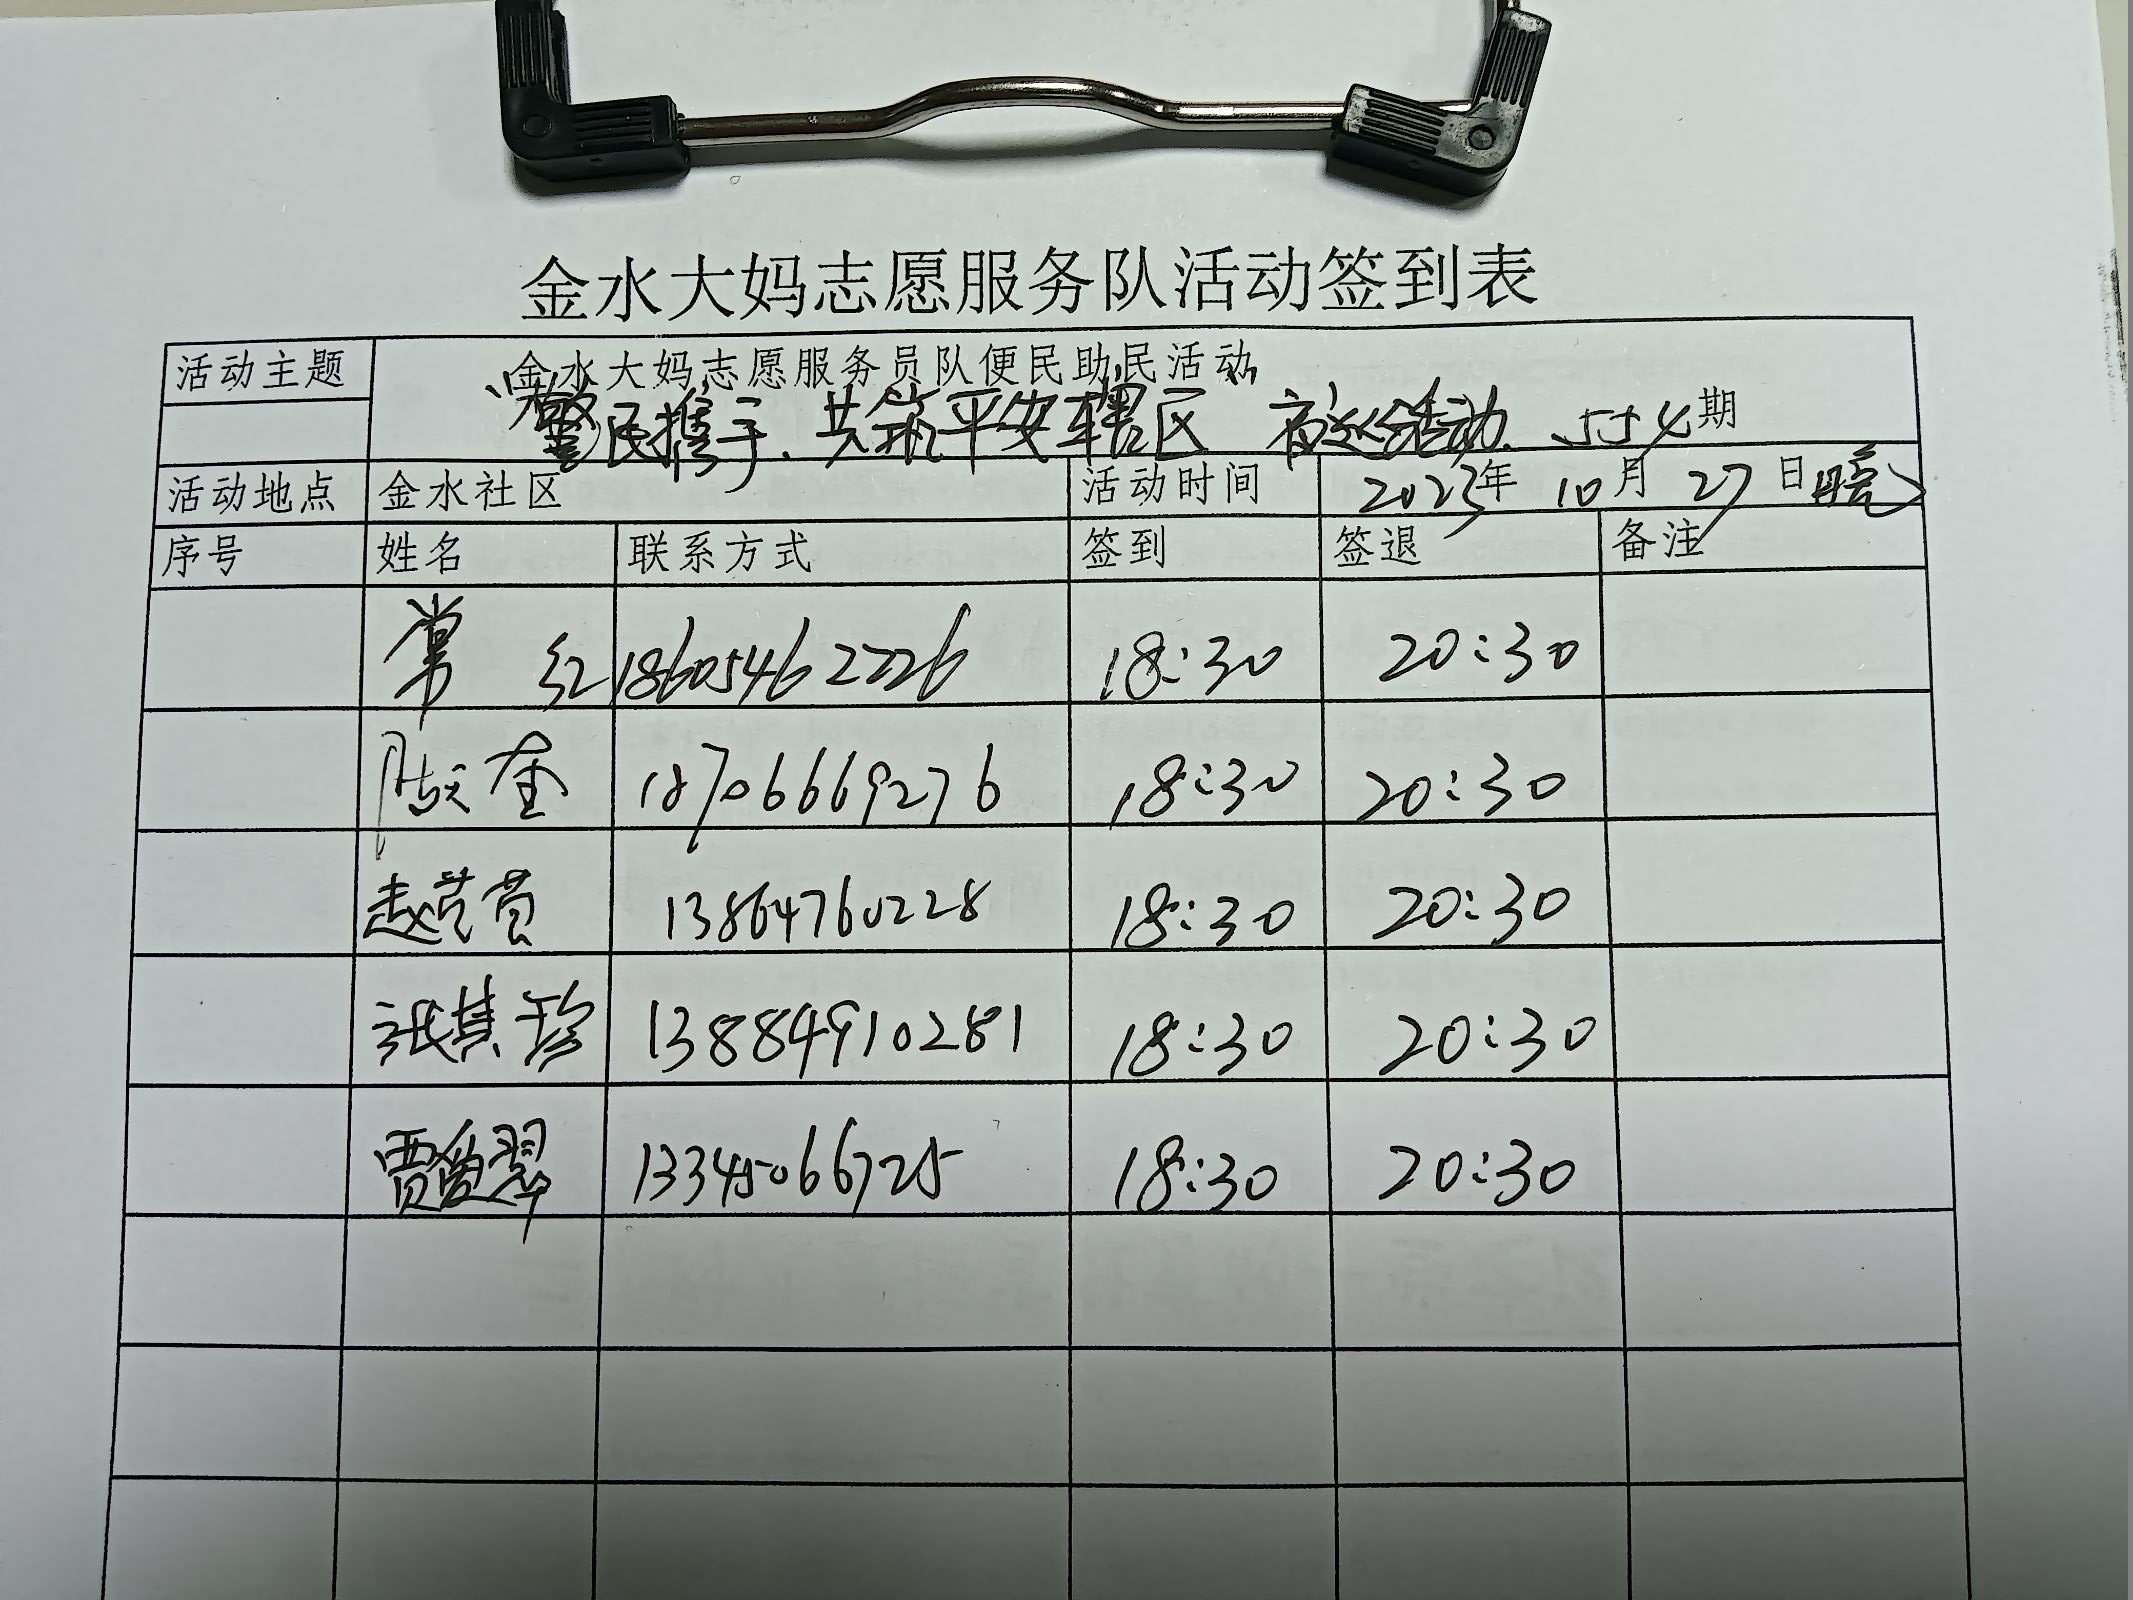 金水大妈志愿服务队活动签到表
活动主题 金水大妈志愿服务员队便民助民活动
警民携手、共筑平安辖区 夜巡活动 554期
活动地点 金水社区 活动时间 2023年 10月 27日晚
序号 姓名 联系方式 签到 签退 备注
常 红 18605462226 18:30 20:30
18706669276 18:30 20:30
赵 13864760228 18:30 20:30
张其珍 13884910281 18:30 20:30
贾爱翠 13345066725 18:30 20:30